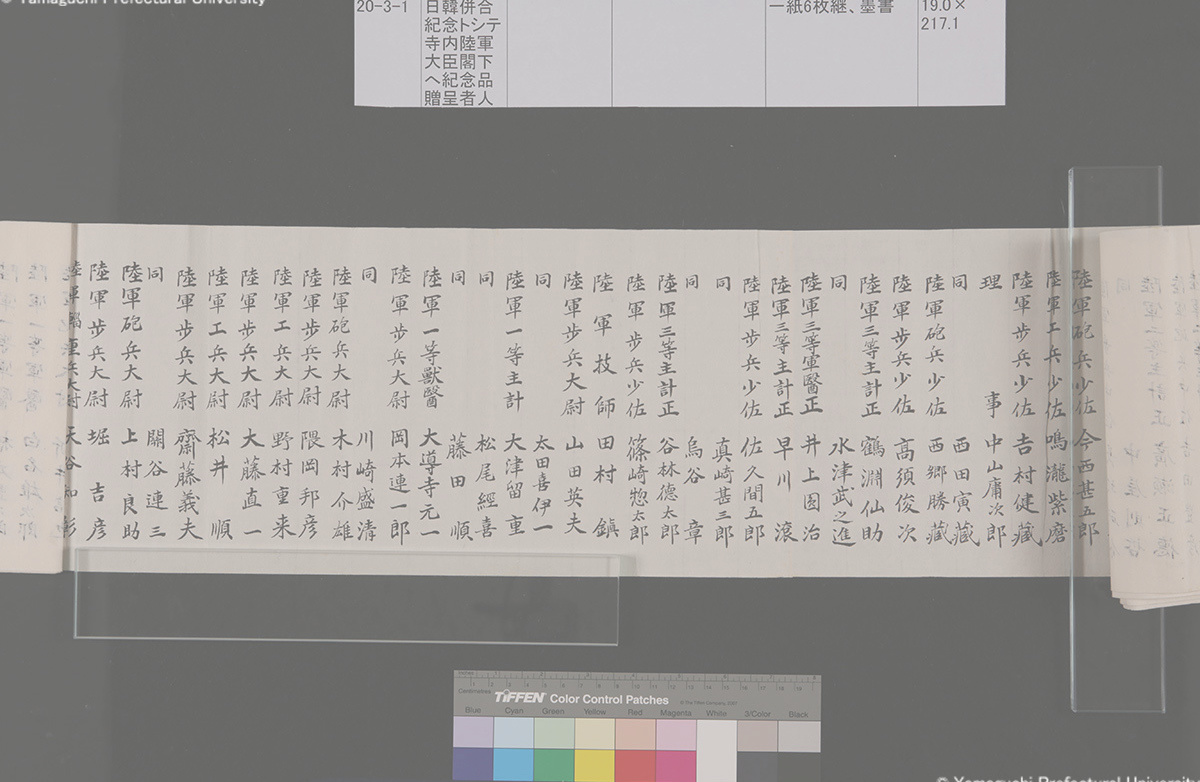 Yamaguchi Prefectural University
20-3-1
日韓併合
紀念トシテ
寺内陸軍
大臣閣下
へ紀念品
贈呈者人
一紙6枚継、墨書
19.0×
217.1
陸軍砲兵少佐 今西甚五郎
陸軍工兵少佐 鳴瀧紫麿
陸軍歩兵少佐 吉村健藏
理事 中山庸次郎
同 西田寅藏
陸軍砲兵少佐 西郷勝藏
陸軍歩兵少佐 高須俊次
陸軍三等主計正 鶴淵仙助
同 水津武之進
陸軍三等軍醫正 井上圓治
陸軍三等主計正 早川滾
陸軍歩兵少佐 佐久間五郎
同 真崎甚三郎
同 烏谷章
陸軍三等主計正 谷林德太郎
陸軍歩兵少佐 篠崎惣太郎
陸軍技師 田村鎮
陸軍歩兵大尉 山田英夫
同 太田喜伊一
陸軍一等主計 大津留重
同 松尾經喜
同 藤田順
陸軍一等獣醫 大導寺元一
陸軍歩兵大尉 岡本連一郎
同 川崎盛清
陸軍砲兵大尉 木村介雄
陸軍歩兵大尉 隈岡邦彦
陸軍工兵大尉 野村重来
陸軍歩兵大尉 大藤直一
陸軍工兵大尉 松井順
陸軍歩兵大尉 齋藤義夫
同 關谷連三
陸軍砲兵大尉 上村良助
陸軍歩兵大尉 堀吉彦
陸軍輜重兵大尉 天谷知彰
Inches
Centimetres
TIFFEN Color Control Patches
© The Tiffen Company, 2007
Blue Cyan Green Yellow Red Magenta White 3/Color Black
© Yamaguchi Prefectural University